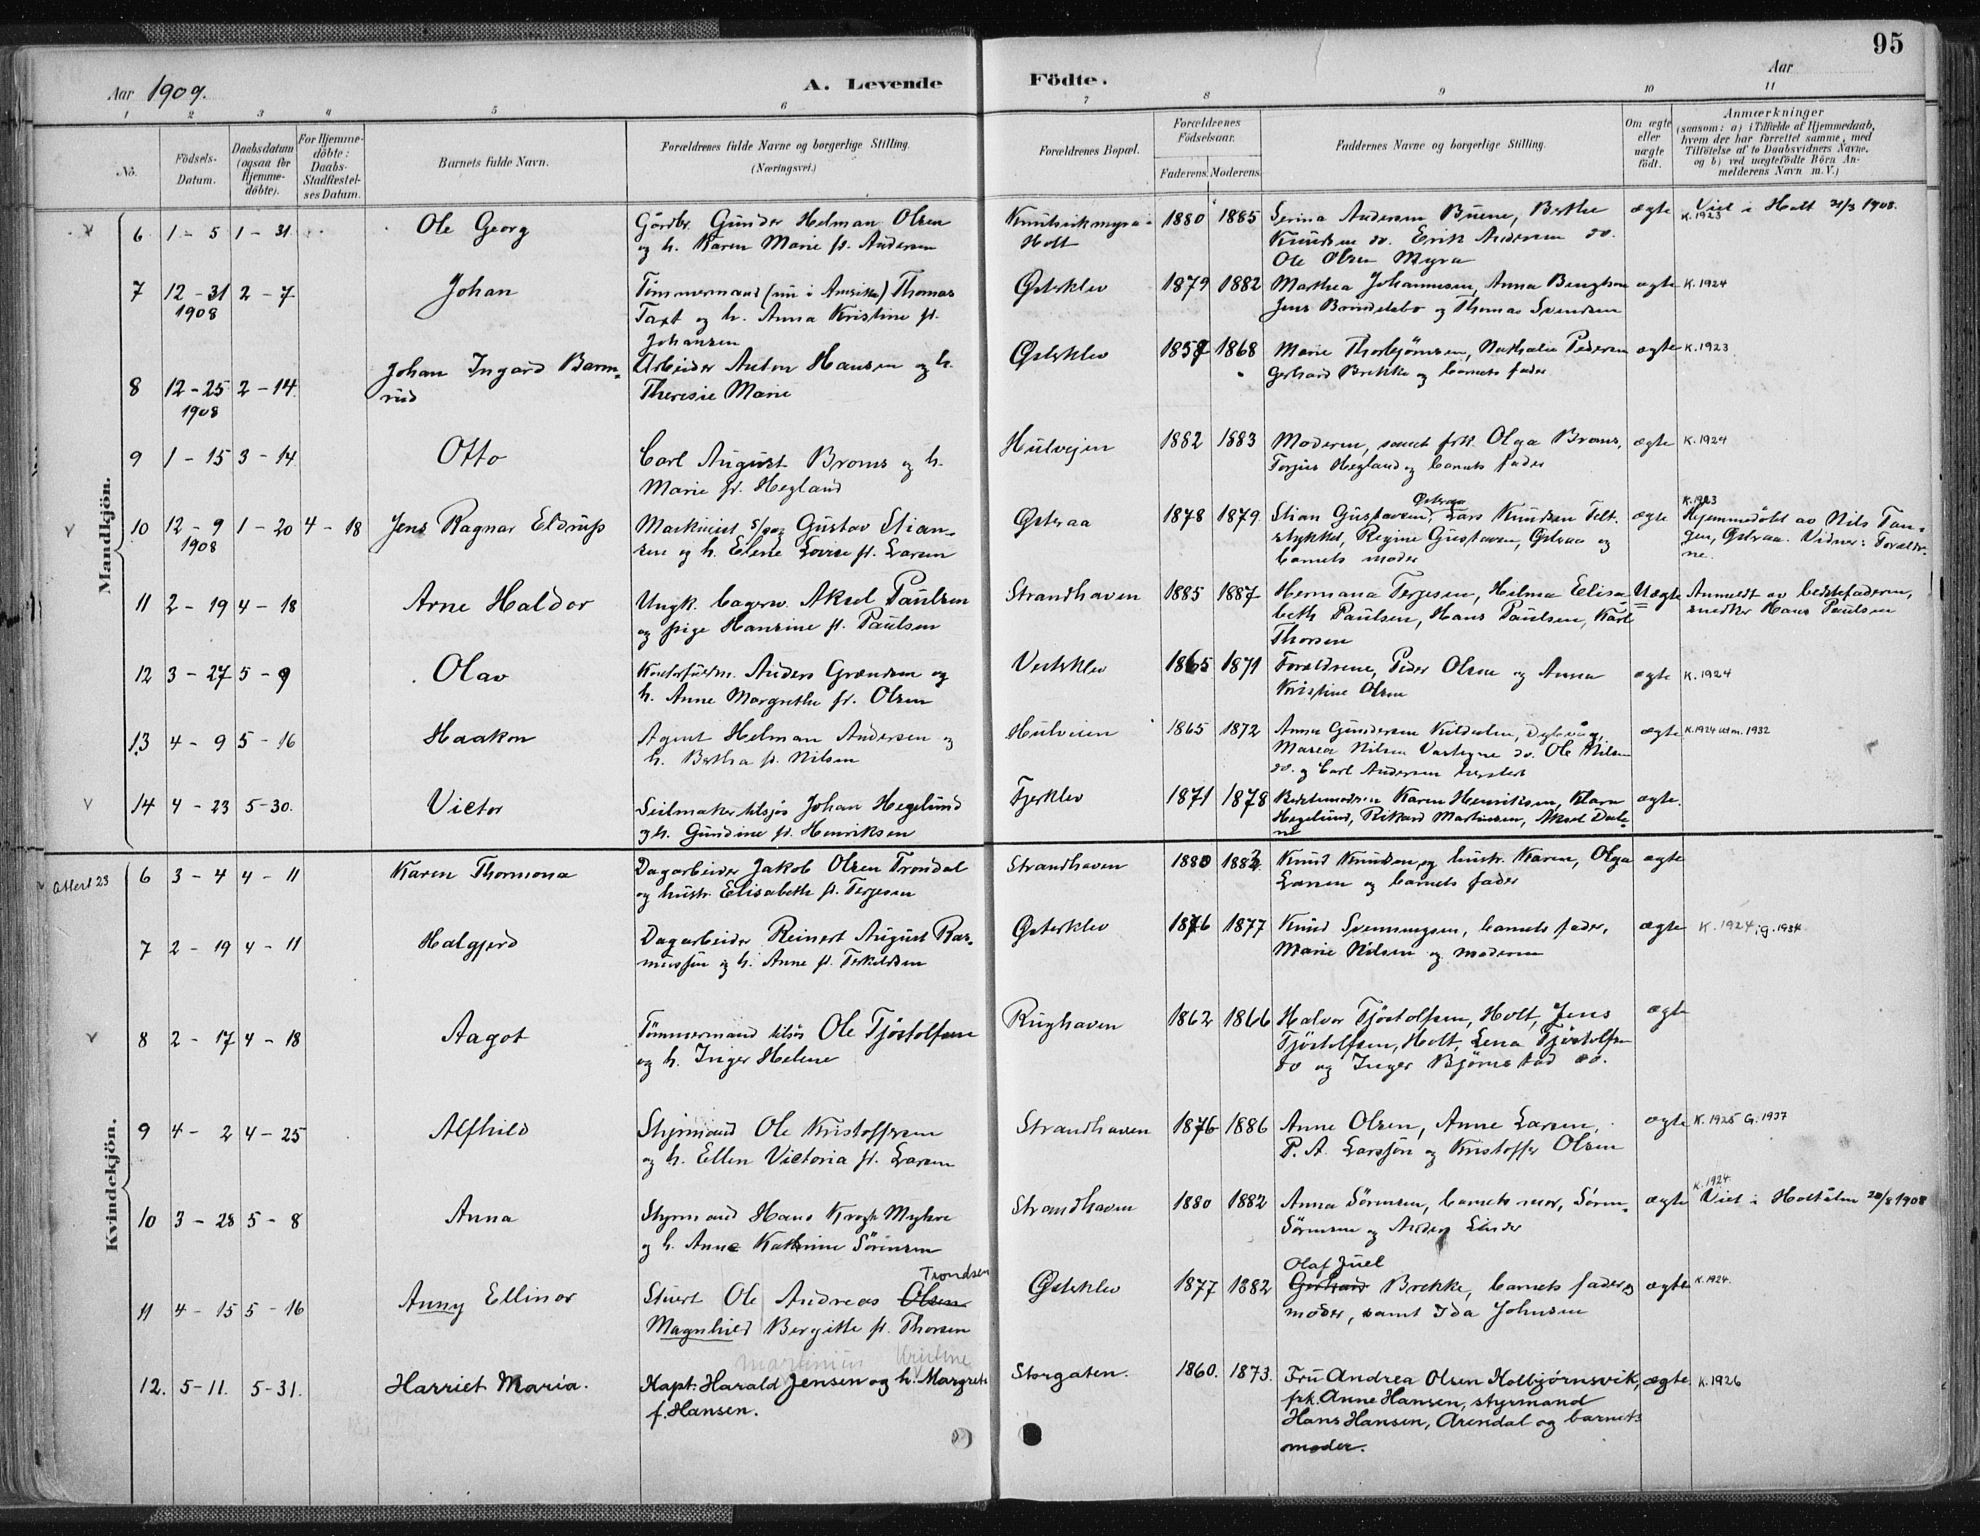 95
Aar 1909.
A. Levende
Födte.
Aar
1 2 3 4 5 6 7 8 9 10 11
No.
Födsels-Datum.
Daabsdatum (ogsaa for Hjemme-döbte).
For Hjemme-döbte: Daabs-Stadfæstel-ses Datum.
Barnets fulde Navn.
Forældrenes fulde Navne og borgerlige Stilling.
(Næringsvei.)
Forældrenes Bopæl.
Forældrenes Födselsaar.
Faderens. Moderens.
Faddernes Navne og borgerlige Stilling.
Om ægte eller uægte födt.
Anmærkninger
(saasom: a) i Tilfælde af Hjemmedaab,
hvem der har forrettet samme, med
Tilföielse af to Daabsvidners Navne,
og b) ved uægtefödte Börn An-
melderens Navn m. V.)
Mandkjön.
6 1 - 5 1 - 31 Ole Georg
Gårdbr. Gunder Helman Olsen
og h. Karen Marie f. Andersen
Knutsvikmyra
Holt
1880 1885
Serina Andersen Buene, Berthe
Knudsen do. Erik Andersen do.
Ole Olsen Myra
ægte
Viet i Holt 21/3 1908.
K. 1923
7 12 - 31 1908 2 - 7 Johan
Tömmermand (nu i Amerika) Thomas
Taxt og h. Anna Kristine f.
Johansen
Østerklev
1879 1882
Mathea Johannesen, Anna Bengtson
Jens Brindelsbo og Thomas Svendsen
ægte K. 1924
8 12 - 25 1908 2 - 14 Johan Ingard Barm-
rud
Arbeider Anton Hansen og h.
Theresie Marie
Østerklev
1857 1868
Marie Thorbjörnsen, Nathalie Pedersen
Gerhard Brekke og barnets fader
ægte K. 1923
9 1 - 15 3 - 14 Otto
Carl August Broms og h.
Marie f. Hegland
Hulvejen
1882 1883
Moderen, samt frk. Olga Broms,
Torjus Hegland og barnets fader
ægte K. 1924
10 12 - 9 1908 1 - 20 4 - 18 Jens Ragnar Eldrup
Maskinist Gustav Stian-
sen og h. Elene Lovise f. Larsen
Østeraa
1878 1879
Østeraa
Stian Gustavsen, Lars Knudsen Telt-
stykket, Regine Gustavsen, Østraa og
barnets moder
ægte
K. 1923
Hjemmedöbt av Nils Tan-
gen, Østraa. Vidner: Forældre-
ne.
11 2 - 19 4 - 18 Arne Haldor
Ungk. bagersv. Aksel Paulsen
og pige Hansine f. Paulsen
Strandhaven
1885 1887
Hermana Terjesen, Helma Elisa
beth Paulsen, Hans Paulsen, Karl
Thorsen
Uægte
Anmeldt av bedstefaderen,
snedker Hans Paulsen
12 3 - 27 5 - 9 Olav
Anders Grændsen og
h. Anne Margrethe f. Olsen
Vesterklev
1865 1871
Forældrene, Peder Olsen og Anna
Kristine Olsen
ægte K. 1924
13 4 - 9 5 - 16 Haakon
Agent Helman Andersen og
h. Bertha f. Nilsen
Hulveien
1865 1872
Anna Gundersen Kildalen, Dybvåg,
Maria Nilsen Vastøgne do. Ole Nilsen
do. og Carl Andersen hersteds
ægte K. 1924 utm. 1932
14 4 - 23 5 - 30. Victor
Seilmaker tilsjøs Johan Hegelund
og h. Gundine f. Henriksen
Tjerklev
1871 1878
Bedstemoderen Karen Henriksen, Klara
Hegelund, Rikard Martinsen, Aksel Dale-
ne
ægte.
Kvindekjön.
Attest 23 6 3 - 4 4 - 11 Karen Thormona
Dagarbeider Jakob Olsen Trondal
og hustr. Elisabeth f. Terjesen
Strandhaven
1880 1882
Knud Knudsen og hustr. Karen, Olga
Larsen og barnets fader
ægte
7 2 - 19 4 - 11 Halgjerd
Dagarbeider Reinert August Ras-
mussen og h. Anne f. Terkeldsen
Østerklev
1876 1877
Knud Svenningsen, barnets fader,
Marie Nilsen og moderen
ægte K. 1924 . g. 1934
8 2 - 17 4 - 18 Aagot
Tömmermand tilsös Ole Tjöstolfsen
og h. Inger Helene
Rughaven
1862 1866
Halvor Tjöstolfsen, Holt, Jens
Tjöstolfsen, Holt, Lena Tjöstolfsen
do og Inger Bjørnestad do.
ægte
9 4 - 2 4 - 25 Alfhild
Styrmand Ole Kristoffersen
og h. Ellen Victoria f. Larsen
Strandhaven
1876 1886
Anne Olsen, Anne Larsen,
P. A. Larssøn og Kristoffer Olsen
ægte K. 1925 G. 1937
10 3 - 28 5 - 8 Anna
Styrmand Hans Krogh Myhre
og h. Anne Kathrine Sörensen
Strandhaven
1880 1882
Anna Sörensen, barnets mor, Sören
Sörensen og Anders Linder
ægte
K. 1924
Viet i Holtålen 20/8 1908
11 4 - 15 5 - 16 Anny Ellinor
Trondsen
Stuert Ole Andreas Olsen
Magnhild Bergitte f. Thorsen
Østerklev
1877 1882
Olaf Juel
Gerhard Brekke, barnets fader og
moder, samt Ida Johnsen
ægte K. 1924.
martinius Kristine
12. 5-11. 5-31. Harriet Maria.
Kapt. Harald Jensen og h. Margrete
f. Hansen.
Storgaten.
1860. 1873.
Fru Andrea Olsen Kolbjørnsvik,
frk. Anne Hansen, styrmand
Hans Hansen, Arendal og barnets
moder.
ægte. K. 1926